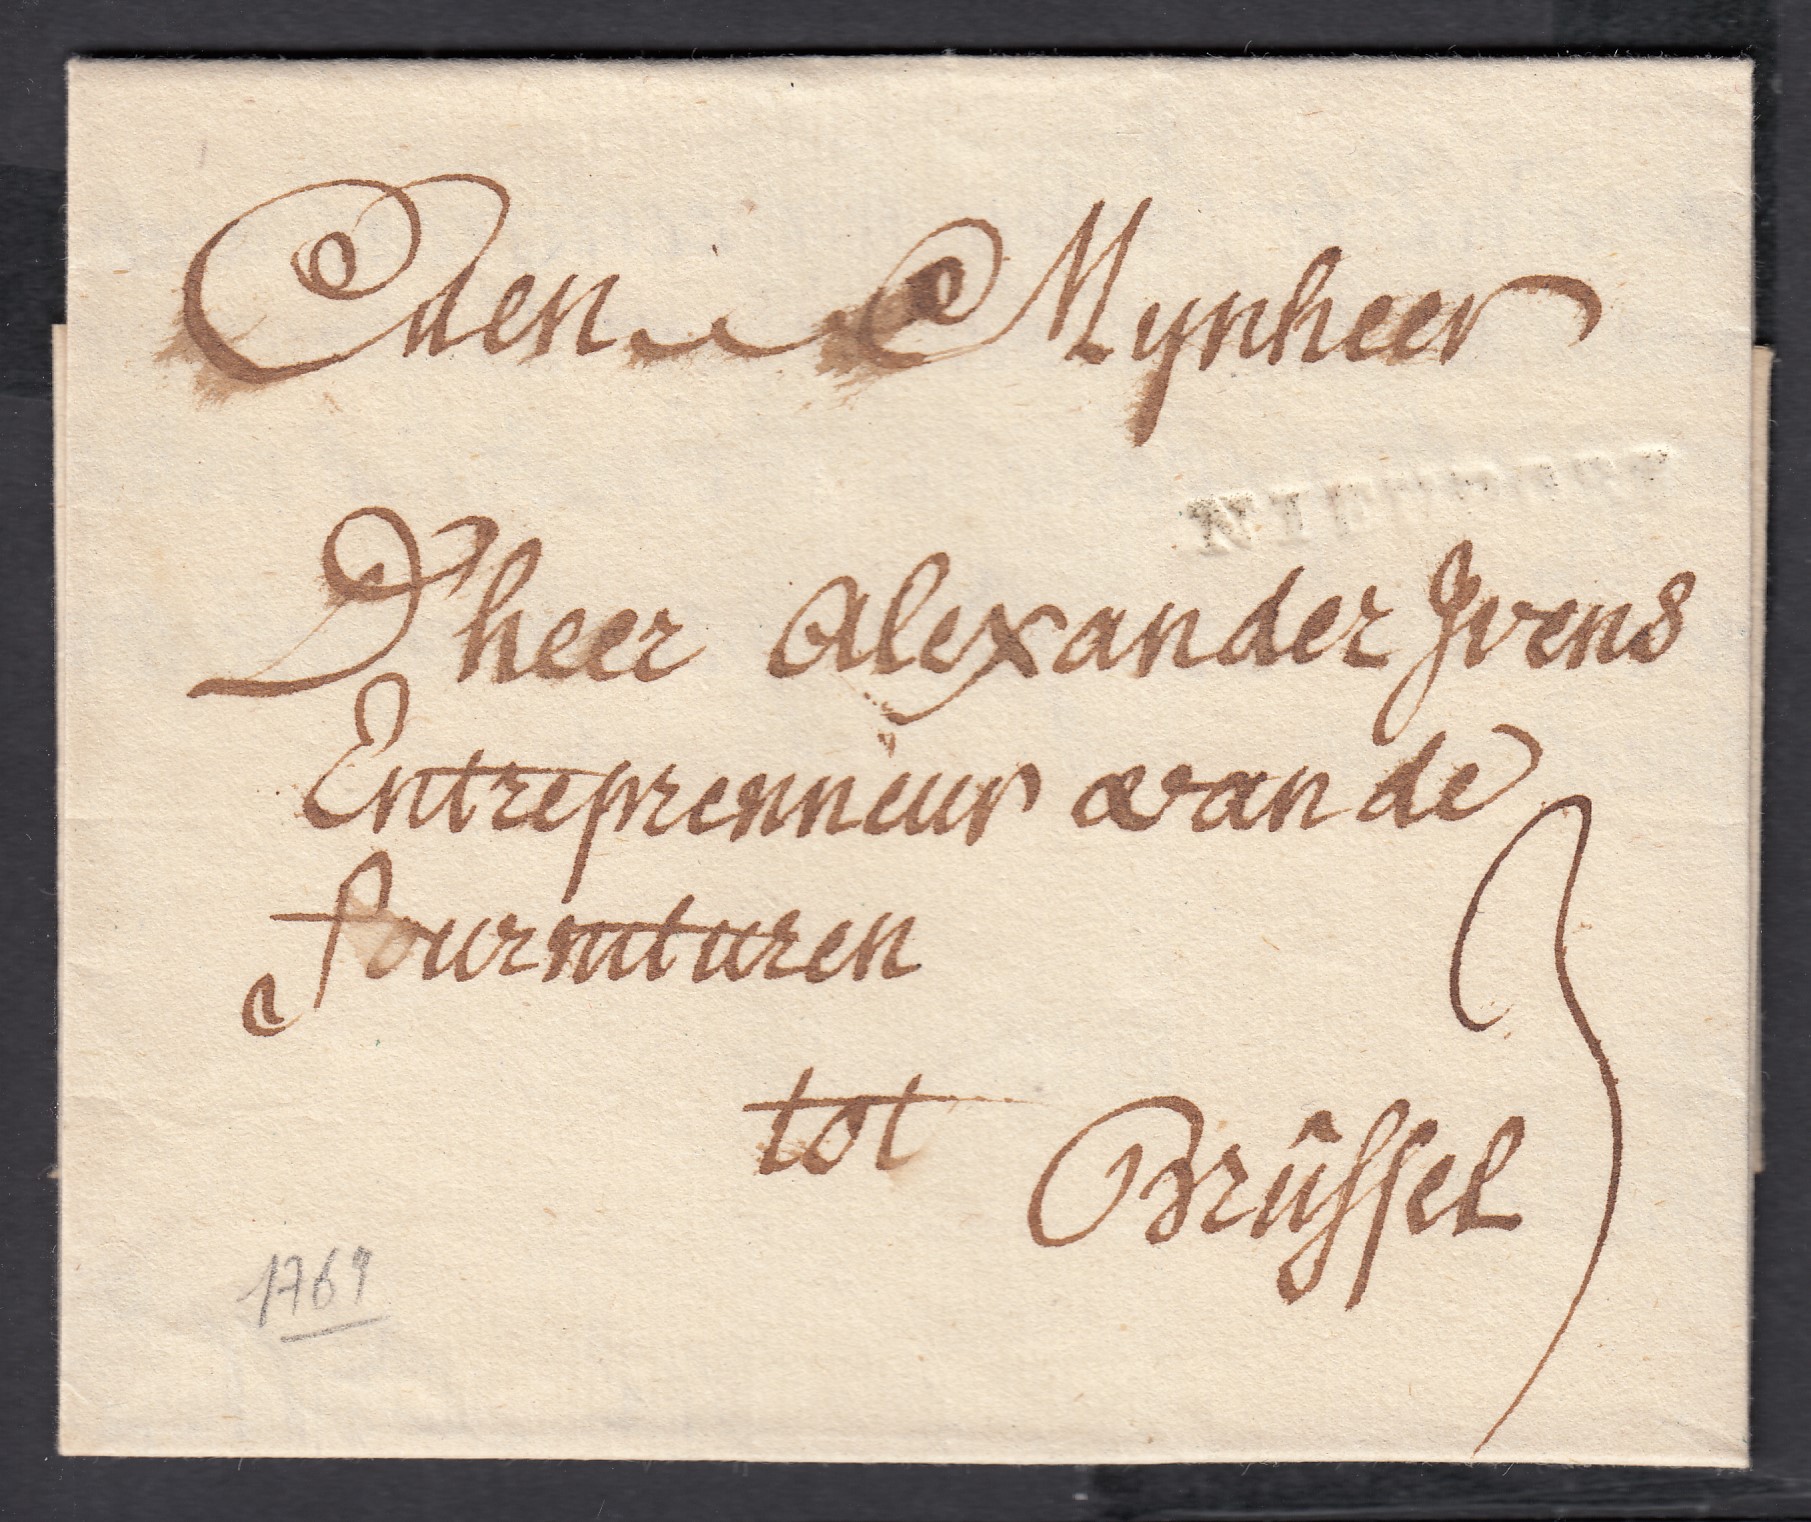 Eden Mynheer
D'heer Alexander Jvens
Entreprenneur van de
fournituren
tot
Brûssel
3
1769